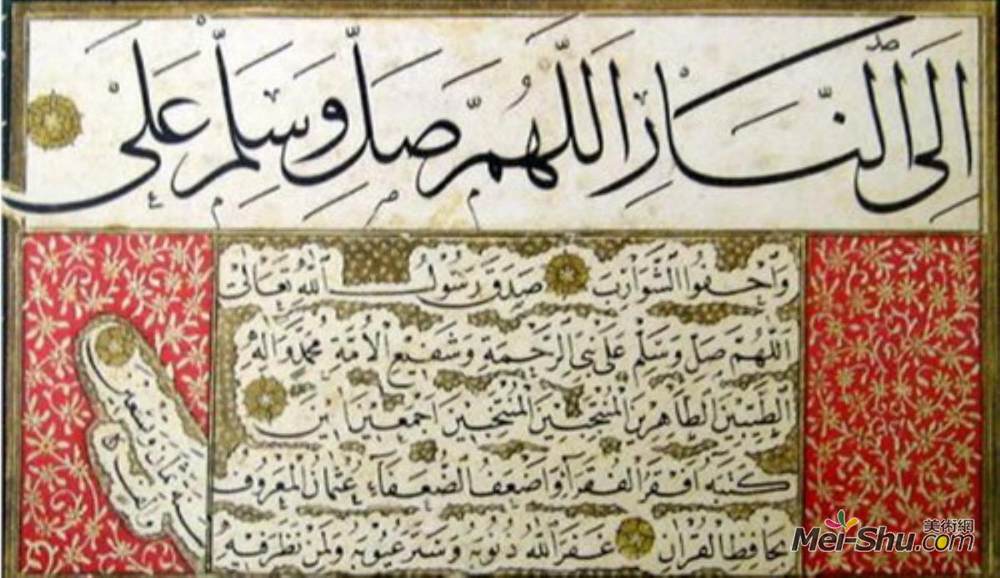 اِلَى النَّارِ اَللّٰهُمَّ صَلِّ وَسَلِّمْ عَلَى
وَاحْفُوا الشَّوَارِبَ صَدَقَ رَسُولُ اللهِ تَعَالَى
اَللّٰهُمَّ صَلِّ وَسَلِّمْ عَلَى نَبِيِّ الرَّحْمَةِ وَشَفِيعِ الْاُمَّةِ مُحَمَّدٍ وَآلِهِ
الطَّيِّبِينَ الطَّاهِرِينَ اَجْمَعِينَ
كَتَبَهُ اَفْقَرُ الْفُقَرَآءِ وَاَضْعَفُ الضُّعَفَآءِ عُثْمَانُ الْمَعْرُوفُ
بِحَافِظِ الْقُرْآنِ غَفَرَ اللهُ ذُنُوبَهُ وَسَتَرَ عُيُوبَهُ وَلِمَنْ نَظَرَ فِيهِ
美術網
Mei-Shu.com